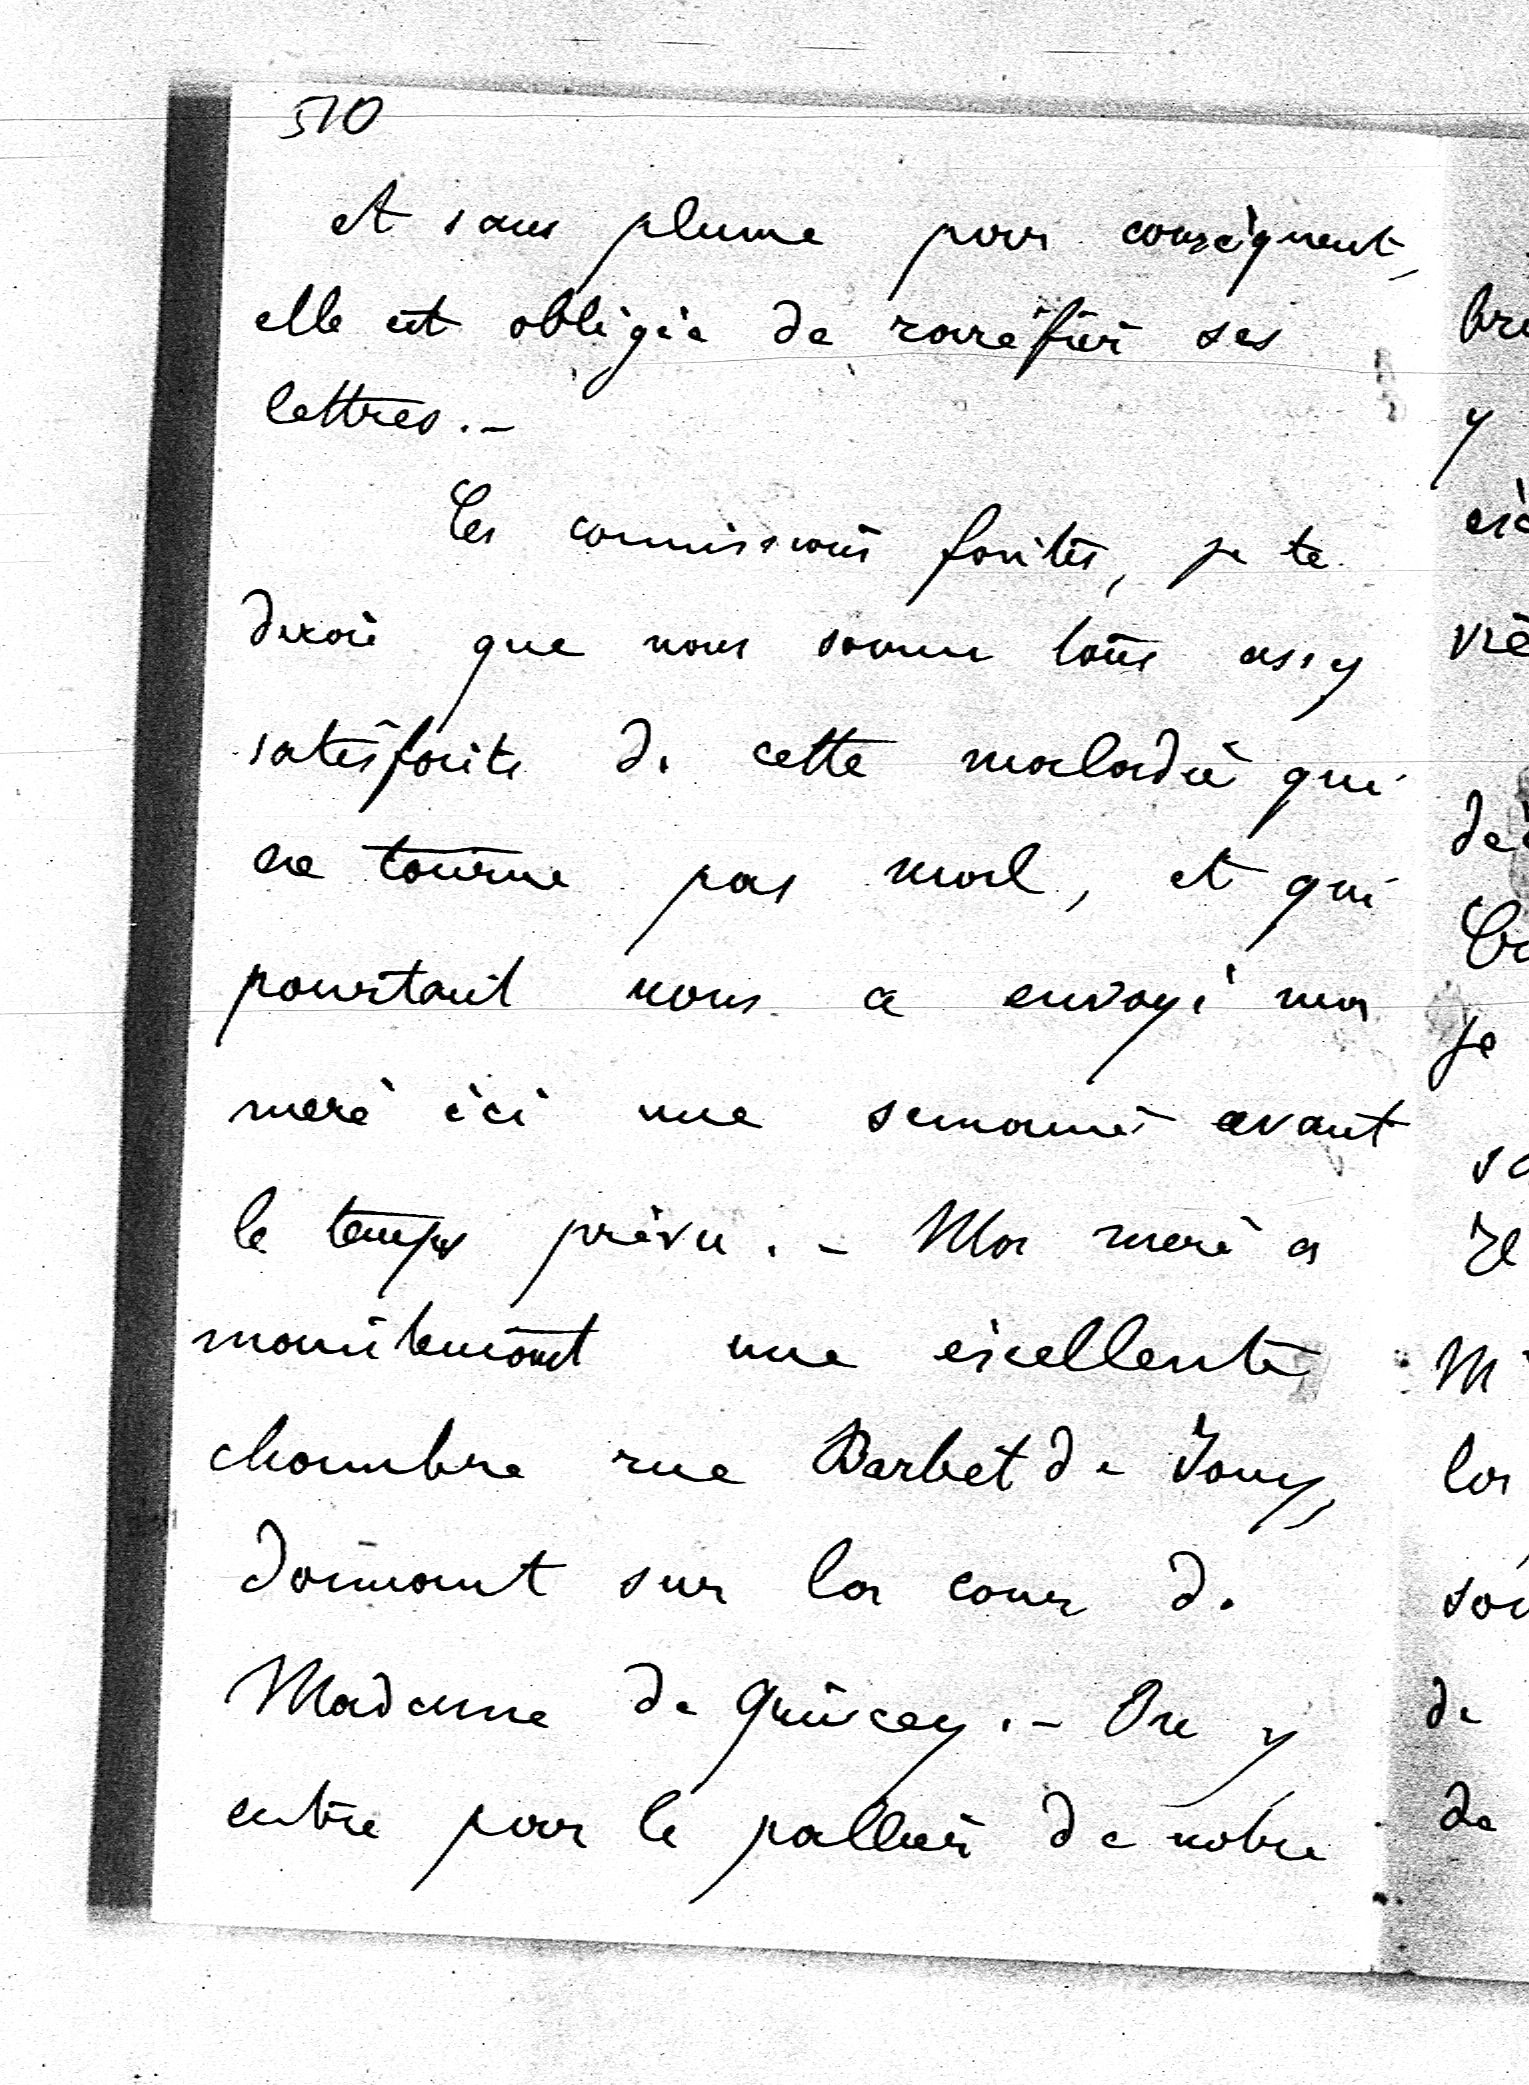 510
et sans plume par conséquent,
elle est obligée de raréfier ses
lettres. -
Ces commissions faites, je te
dirai que nous sommes tous assez
satisfaits de cette maladie qui
ne tourne pas mal, et qui
pourtant nous a envoyé ma
mère ici une semaine avant
le temps prévu. - Ma mère a
maintenant une excellente
chambre rue Barbet de Jouy,
donnant sur la cour de
Madame de Quincey. - On y
entre par le pallier de notre